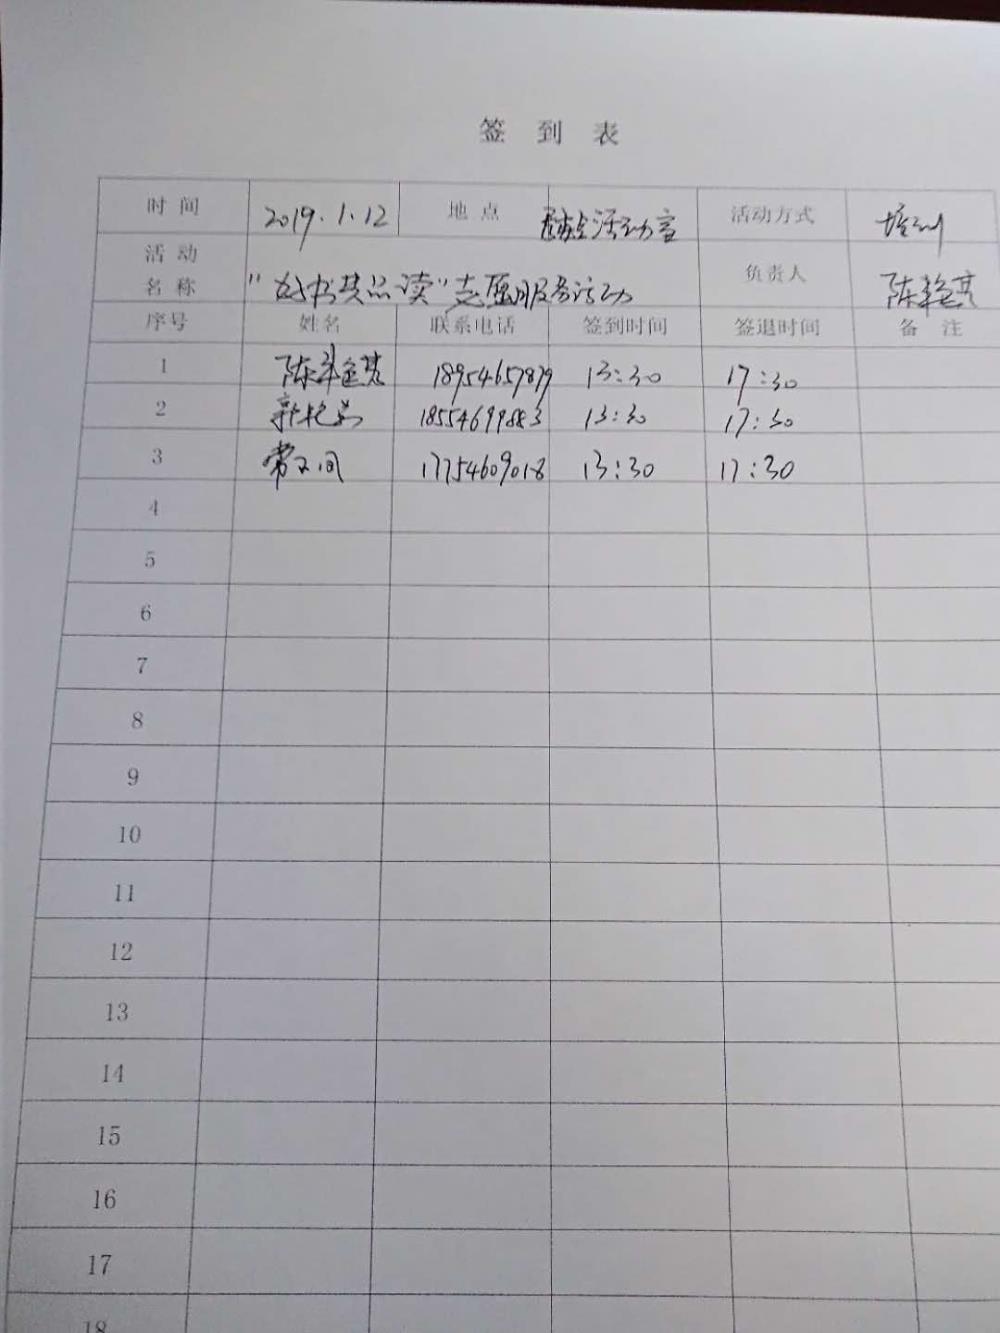 签 到 表
时 间 2019.1.12 地 点 活动室 活动方式 培训
活 动
名 称 "好书共品读"志愿服务活动 负责人 陈
序号 姓名 联系电话 签到时间 签退时间 备 注
1 陈 18954657879 13:30 17:30
2 18554699883 13:30 17:30
3 常 17754609018 13:30 17:30
4
5
6
7
8
9
10
11
12
13
14
15
16
17
18